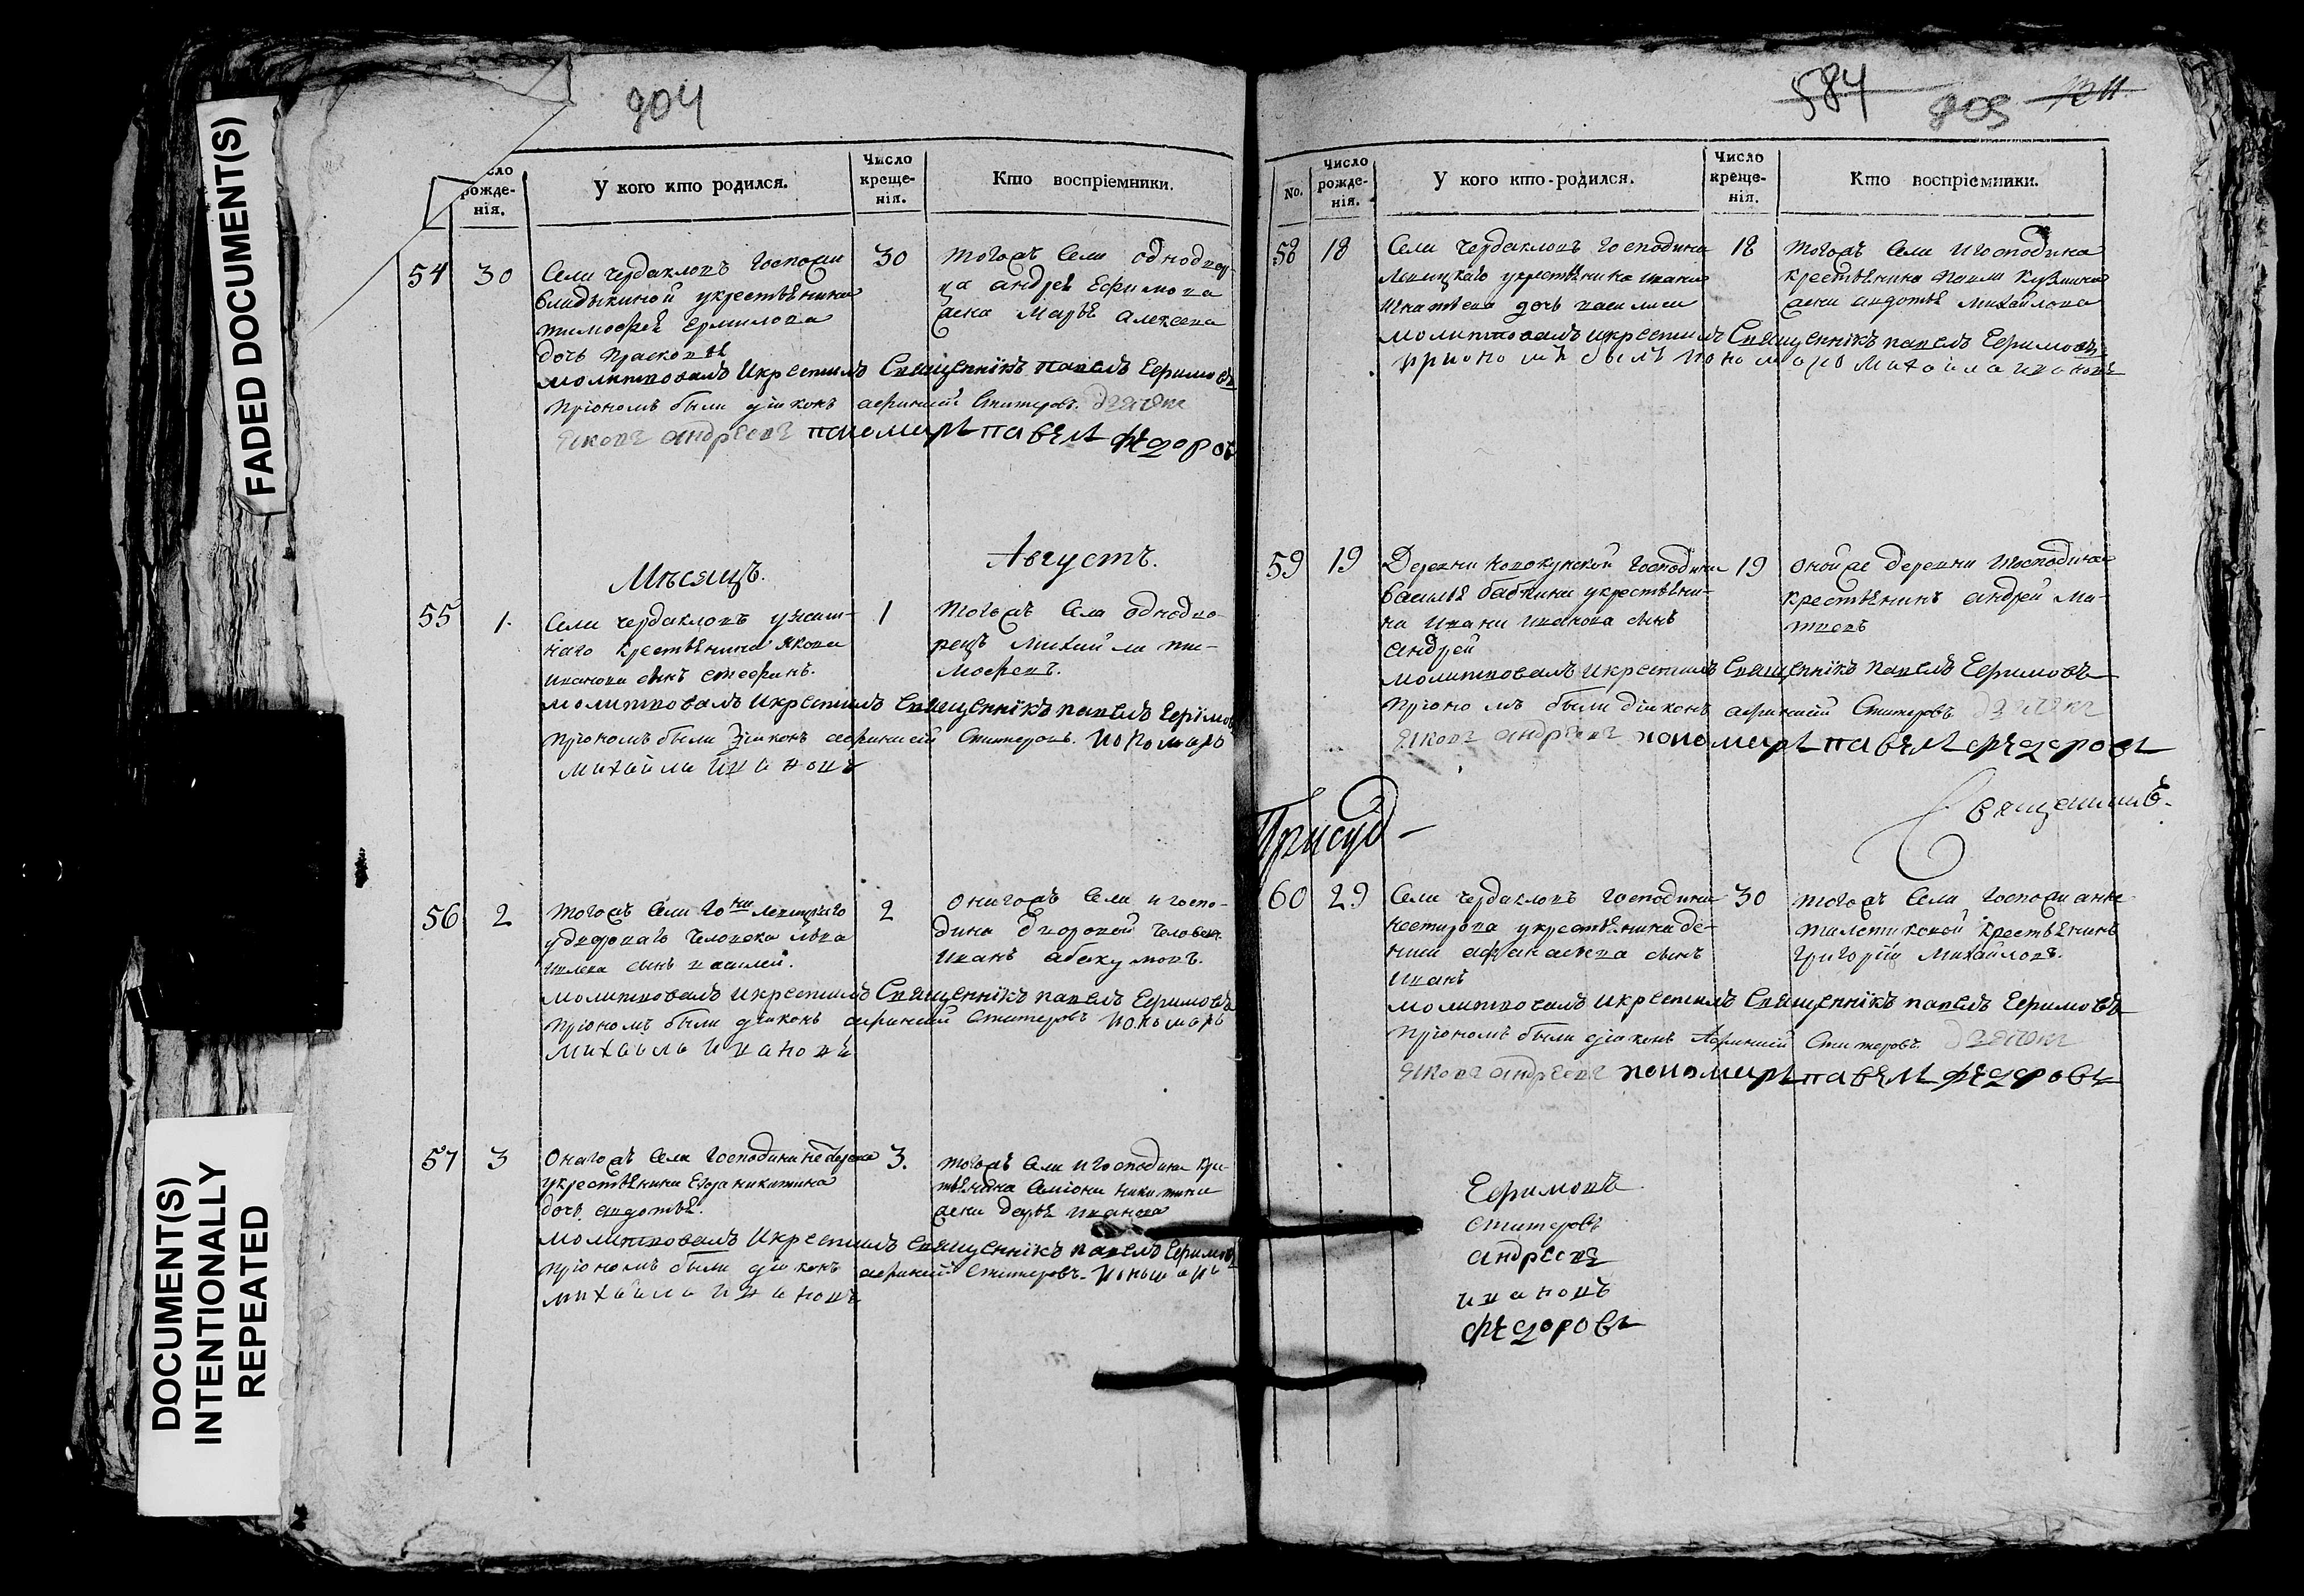 FADED DOCUMENT(S)
DOCUMENT(S)
INTENTIONALLY
REPEATED
904
сло рожде- нія.
У кого кто родился.
Число креще- нія.
Кто воспріемники.
54 30
Села Чердакловъ Госпожи
Владыкиной укрестьянина
тимофея Ермилова
дочь Прасковья
30
тогожъ Села однодвор-
ца андрея Ефимова
жена Марья Алексеева
молитвовалъ икрестилъ Священникъ павелъ Ефимовъ
пріономъ были діаконъ афанасій Ститеровъ дьячокъ
яковъ андреевъ пономарь павелъ федоровъ
Мѣсяцъ.
Августъ.
55 1.
Села Чердаклова
крестьянина Якова
Иванова сынъ стефанъ.
1
тогожъ Села однодво-
рецъ Михайла ти-
мофеевъ.
молитвовалъ икрестилъ Священникъ павелъ Ефимовъ
пріономъ были діаконъ афанасій Ститеровъ. пономарь
михайла ивановъ
56 2
тогожъ Села
удвороваго человека
сынъ василей.
2
оногожъ Села игоспо-
дина дворовой человекъ
Иванъ абакумовъ.
молитвовалъ икрестилъ Священникъ павелъ Ефимовъ
пріономъ были діаконъ афанасій Ститеровъ пономарь
михайла ивановъ
57 3
Оногожъ Села Господина
укрестьянина Егора никитина
дочь авдотья.
3.
тогожъ Села игосподина кре-
стьянина Симіона никитина
жена дарья Иванова
молитвовалъ икрестилъ Священникъ павелъ Ефимовъ
пріономъ были діаконъ афанасій Ститеровъ. пономарь
михайла ивановъ
584 905
No.
Число рожде- нія.
У кого кто родился.
Число креще- нія.
Кто воспріемники.
58 18
Села Чердаклова Господина
укрестьянина ивана
Игнатьева дочь василиса
18
тогожъ Села игосподина
крестьянина
жена авдотья Михайлова
молитвовалъ икрестилъ Священникъ павелъ Ефимовъ
приономъ былъ пономарь Михайла ивановъ
59 19
Деревни Господина
Василья бабкина укрестьяни-
на Ивана Иванова сынъ
андрей
19
оной же деревни игосподина
крестьянинъ андрей Ма-
твеевъ
молитвовалъ икрестилъ Священникъ павелъ Ефимовъ
пріономъ были діаконъ афанасій Ститеровъ дьячокъ
яковъ андреевъ пономарь павелъ федоровъ
Присуд-
Священникъ
60 29
Села Чердаклова Господина
нестерова укрестьянина де-
ниса афанасьева сынъ
иванъ
30
тогожъ Села Госпожи анны
крестьянинъ
григорій Михайловъ.
молитвовалъ икрестилъ Священникъ павелъ Ефимовъ
пріономъ были діаконъ Афанасій Ститеровъ. дьячокъ
яковъ андреевъ пономарь павелъ федоровъ
Ефимовъ
Ститеровъ
андреевъ
ивановъ
федоровъ